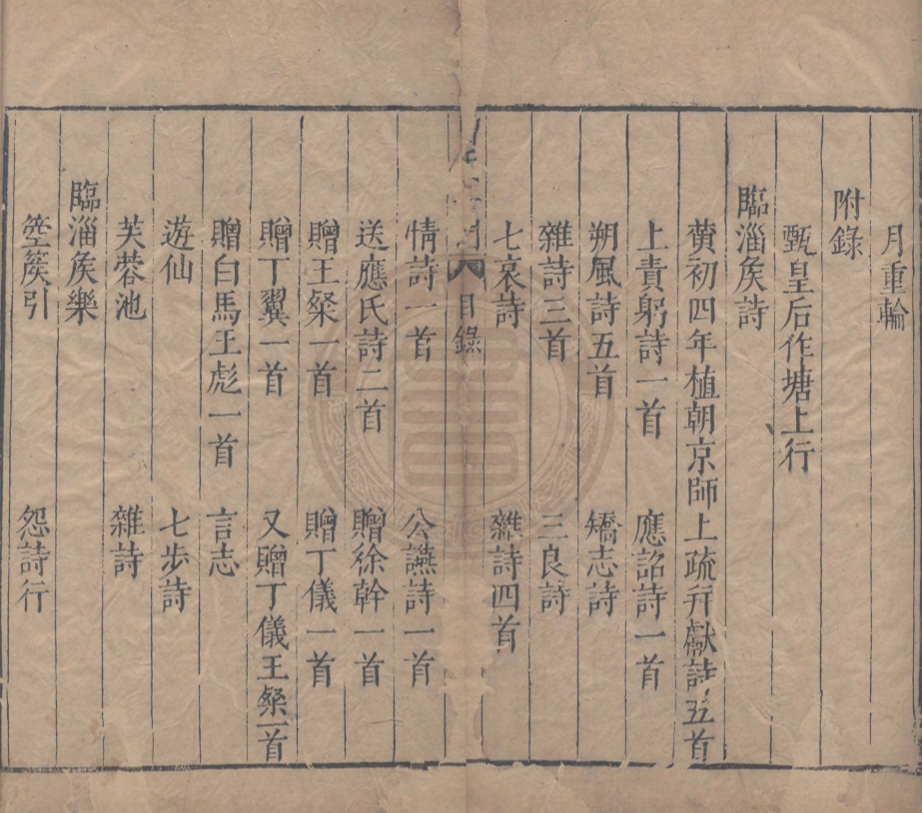 月重輪
附錄
甄皇后作塘上行
臨淄矦詩
黄初四年植朝京師上疏幷獻詩五首
上責躬詩一首　應詔詩一首
朔風詩五首　矯志詩
雜詩三首　三良詩
七哀詩　雜詩四首
目錄
情詩一首　公讌詩一首
送應氏詩二首　贈徐幹一首
贈王粲一首　贈丁儀一首
贈丁翼一首　又贈丁儀王粲一首
贈白馬王彪一首　言志
遊仙　七步詩
芙蓉池　雜詩
臨淄矦樂
箜篌引　怨詩行